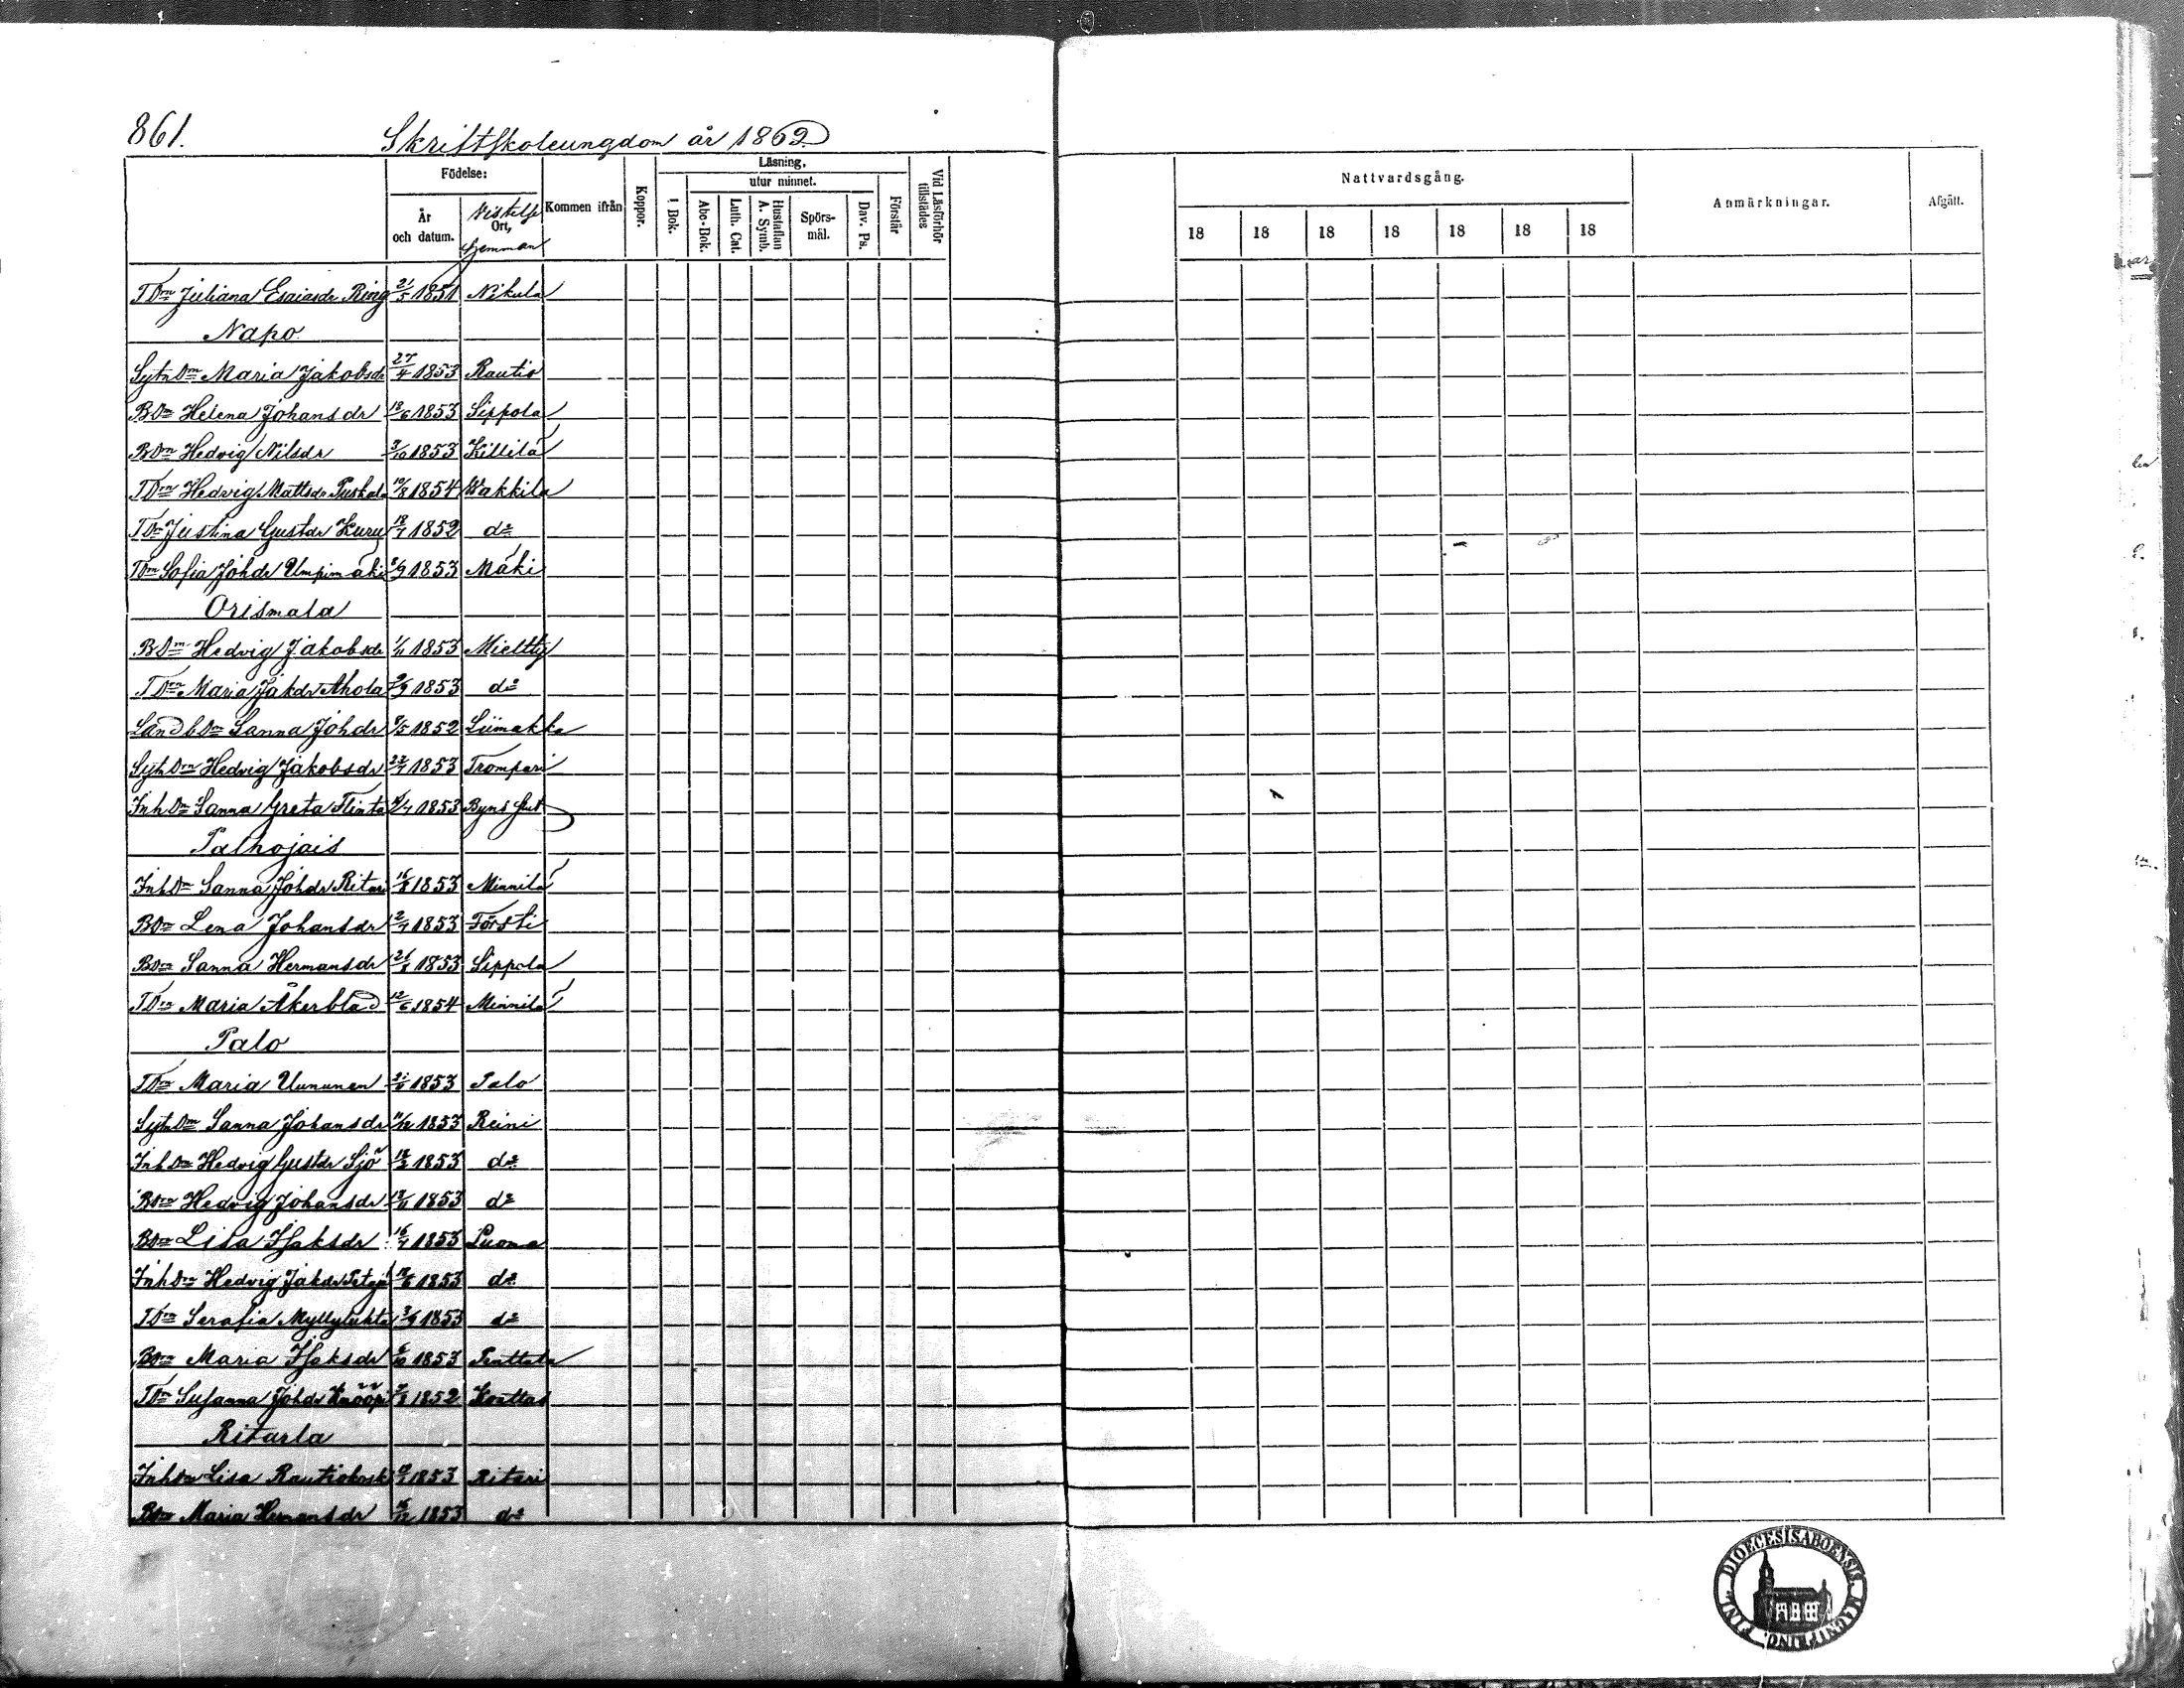 861.
Skriftskoleungdom år 1869
Födelse:
År och datum.
Vistelse Ort, Hemman
Kommen ifrån
Koppor.
Läsning.
utur minnet.
I Bok.
Abc-Bok.
Luth. Cat.
Hustaflan A. Symb.
Spörs-mål.
Dav. Ps.
Förstår
Vid Läsförhör tillstädes
Nattvardsgång.
18 18 18 18 18 18 18
Anmärkningar.
Afgått.
TDr Juliana Esaiasdr Ring 21/5 1851 Nikula
Napo
Sytn Dr Maria Jakobsdr 27/4 1853 Rautio
BDr Helena Johansdr 1853 Sippola
BDr Hedvig Nilsdr 3/10 1853 Killilä
TDr Hedvig Mattsdr Puskala 10/8 1854 Wakkila
TDr Justina Gustdr Kuru 1852 do
TDr Sofia Johdr Umpimäki 1853 Mäki
Orismala
BDr Hedvig Jakobsdr 1/11 1853 Mieltty
TDr Maria Jakdr Ahola 1853 do
Landb Dr Sanna Johdr 8/5 1852 Liimakka
Sytn Dr Hedvig Jakobsdr 1853 Trompari
Inh Dr Sanna Greta Flinta 1853 Byns
Palhojais
Inh Dr Sanna Johdr Ritari 16/8 1853 Minnilä
BDr Lena Johansdr 1853 Försti
BDr Sanna Hermansdr 21/8 1853 Sippola
TDr Maria Åkerblad 12/6 1854 Minnilä
Palo
TDr Maria Uununen 1853 Palo
Sytn Dr Sanna Johansdr 1853 Reini
Inh Dr Hedvig Gustdr Sjö 1853 do
BDr Hedvig Johansdr 1853 do
BDr Lisa Isaksdr 1853 Luoma
Inh Dr Hedvig Jakdr 1853 do
TDr Serafia Myllyluhta 3/9 1853 do
BDr Maria Isaksdr 1853 Penttala
TDr Susanna Johdr Knööpi 1852
Ritarla
Inh Dr Lisa Rautiokoski 1853 Ritari
BDr Maria Hermansdr 1853 do
DIOECESIS ABOENSIS MAGNI PRINC. FINL.